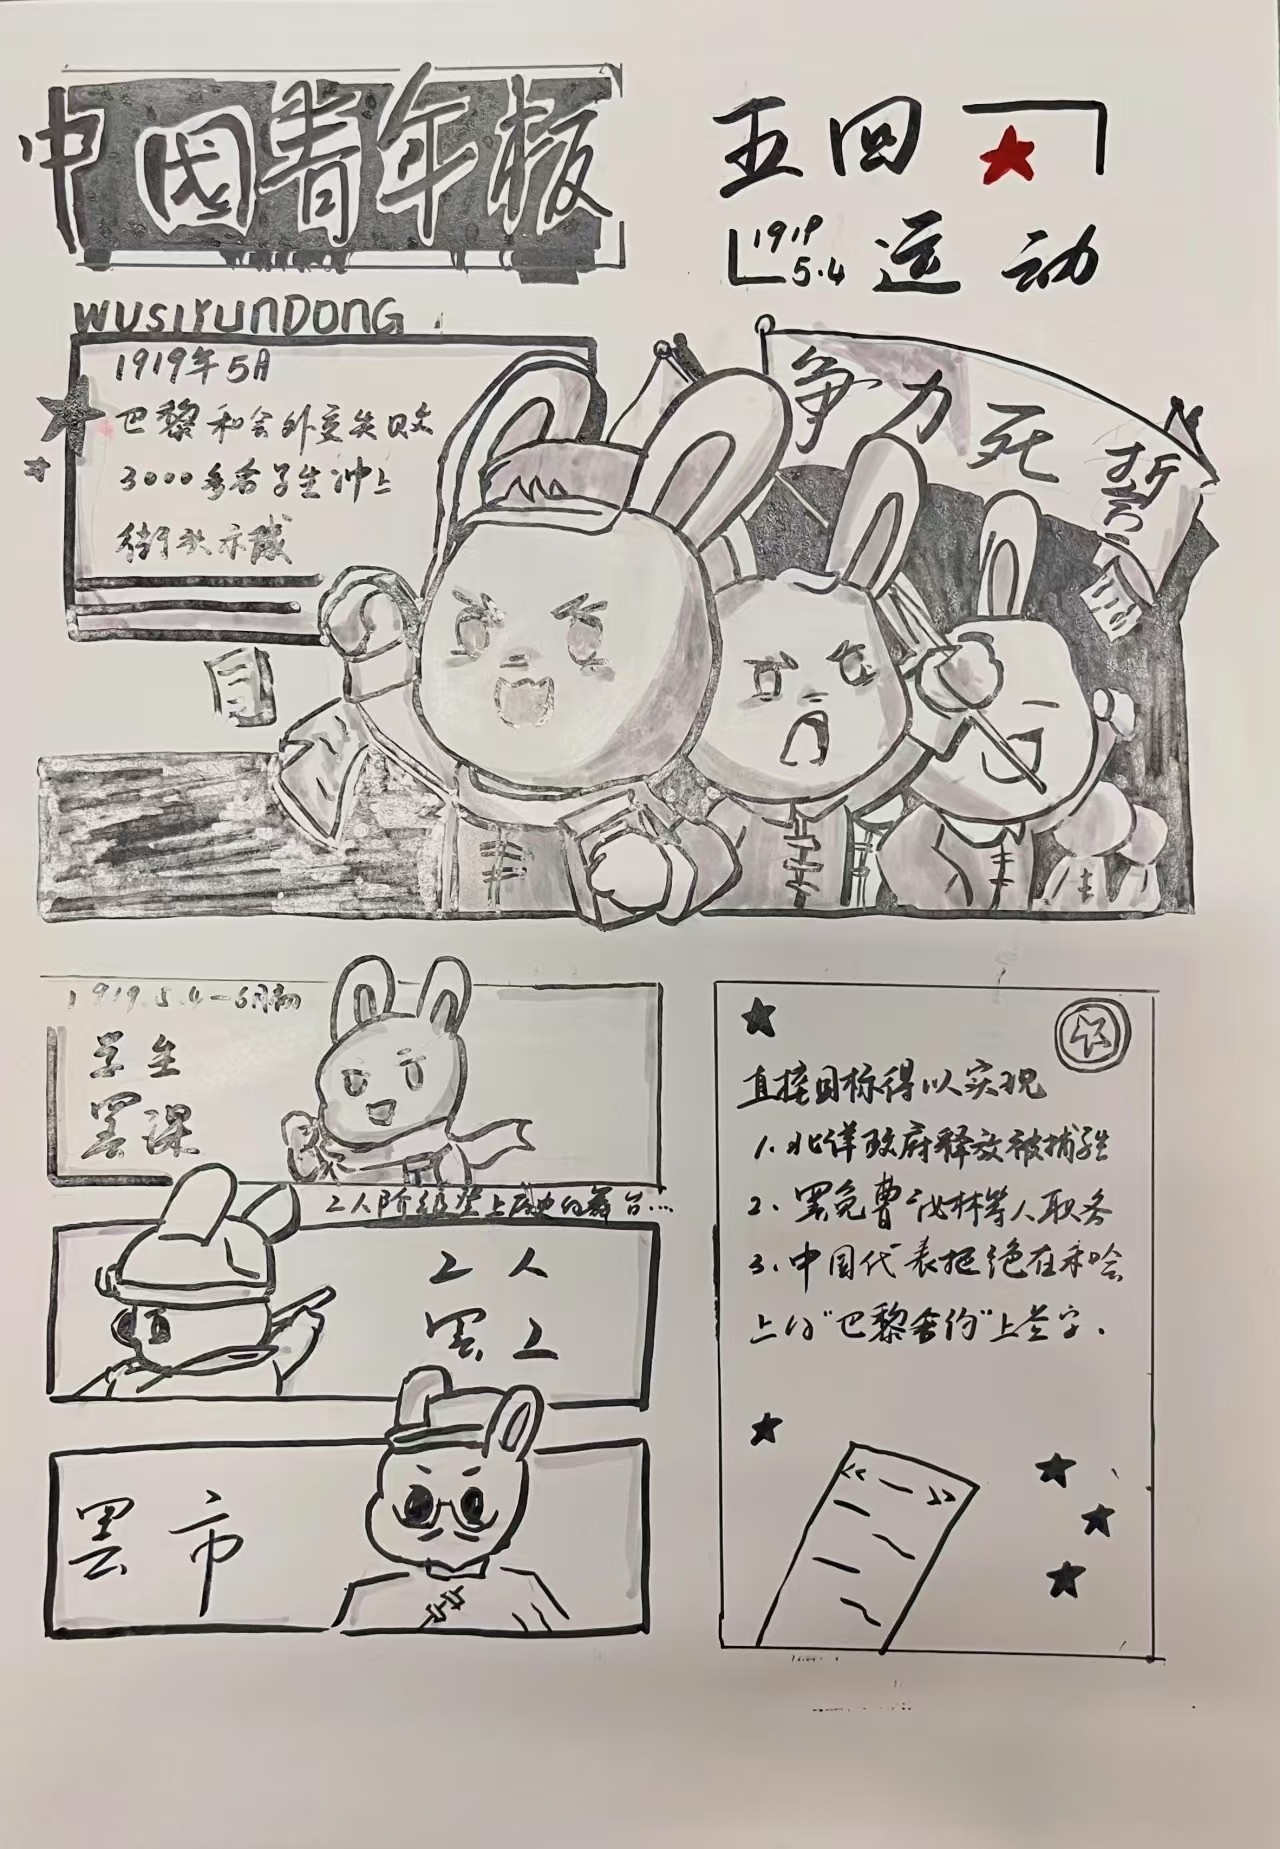 中国青年报
五四
1919
5.4
运动
WUSIYUNDONG
1919年5月
巴黎和会外交失败
3000多名学生冲上
街头示威
争 力 死 誓
1919.5.4-6月初
学生
罢课
工人阶级登上历史的舞台...
工人
罢工
罢市
直接目标得以实现
1.北洋政府释放被捕学生
2.罢免曹汝林等人职务
3.中国代表拒绝在和会
上的"巴黎合约"上签字.